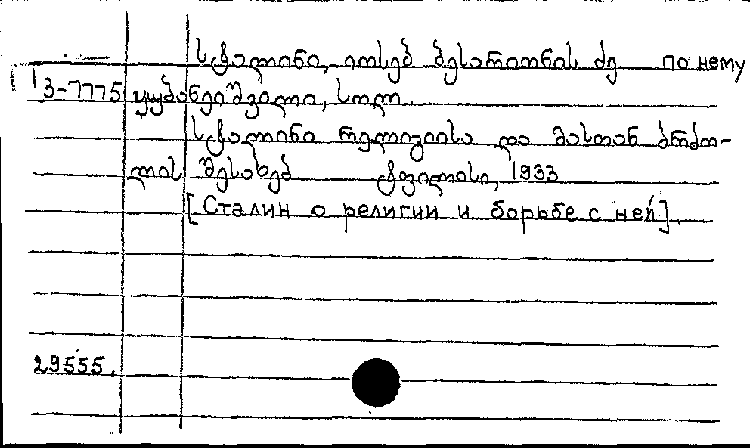 სტალინი, იოსებ ბესარიონის ძე по нему
13-7775 ყუბანეიშვილი, სოლ.
სტალინი რელიგიისა და მასთან ბრძო-
ლის შესახებ ტფილისი, 1933
[Сталин о религии и борьбе с ней].
29555.